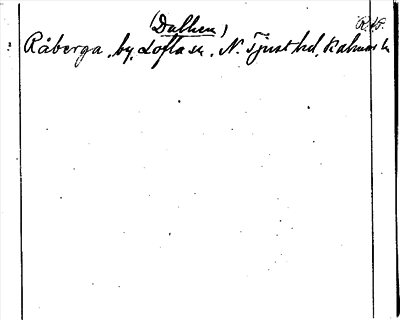 (Dalhem)
Råberga, by, Lofta sn. N. Tjust hd, Kalmar l.